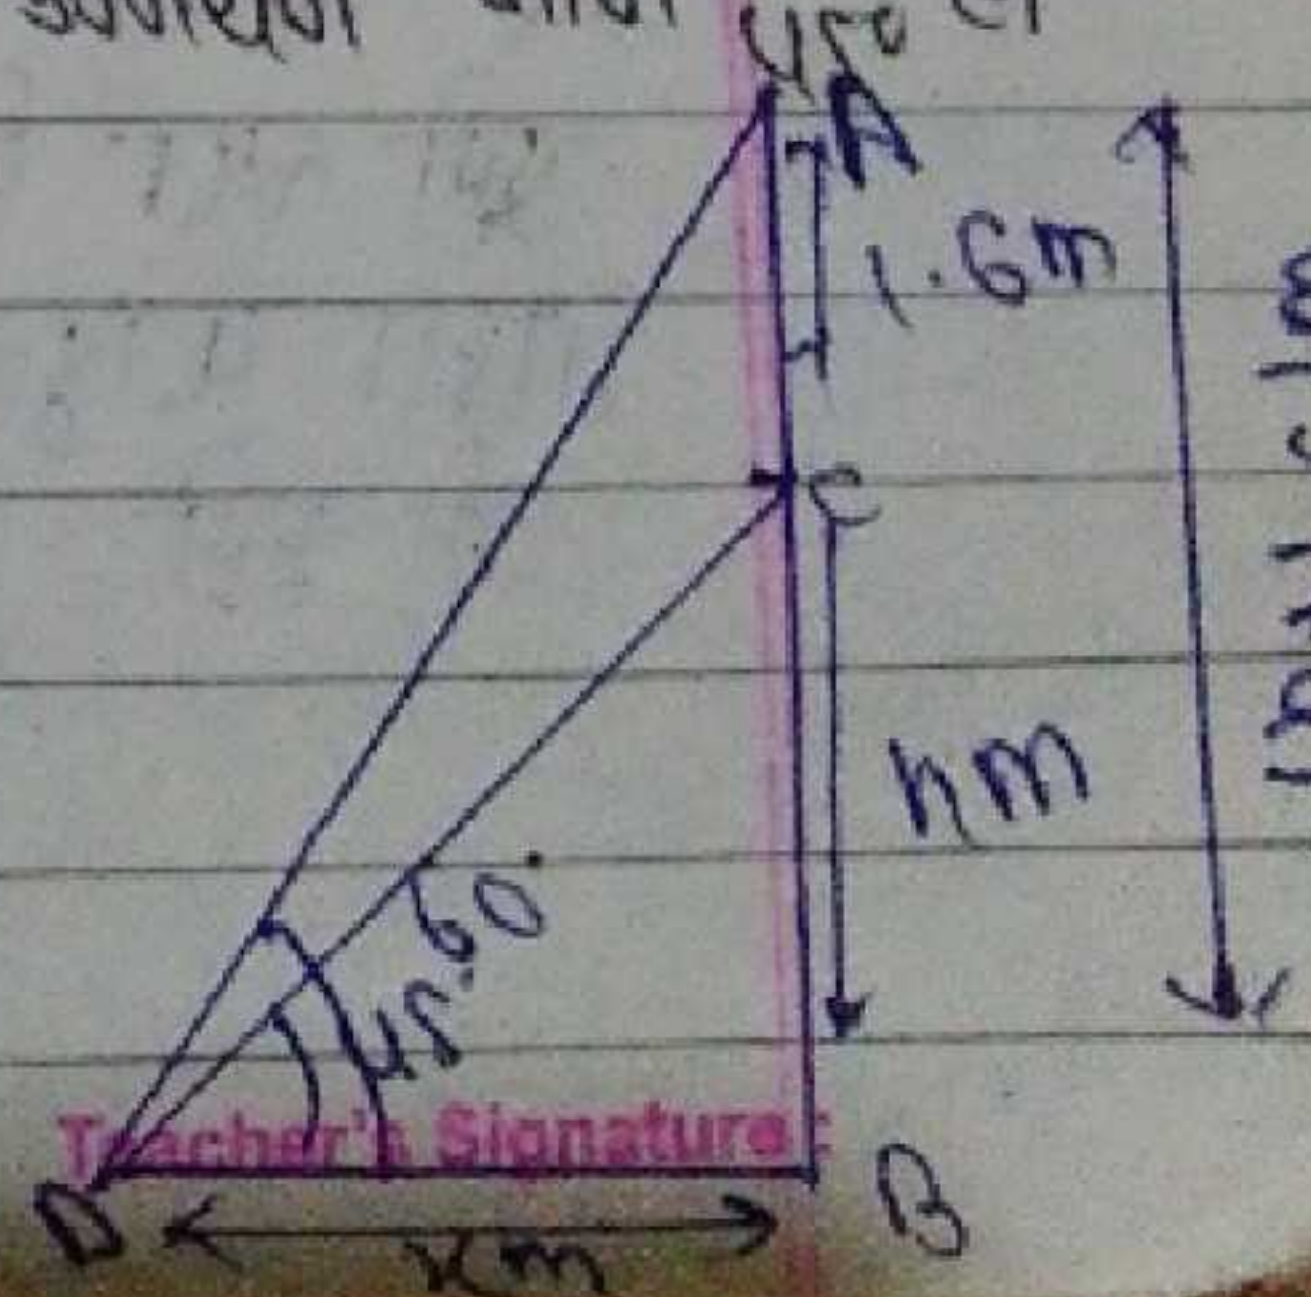 A
1.6m
C
hm
60°
45°
Teacher's Signature:
D
B
xm